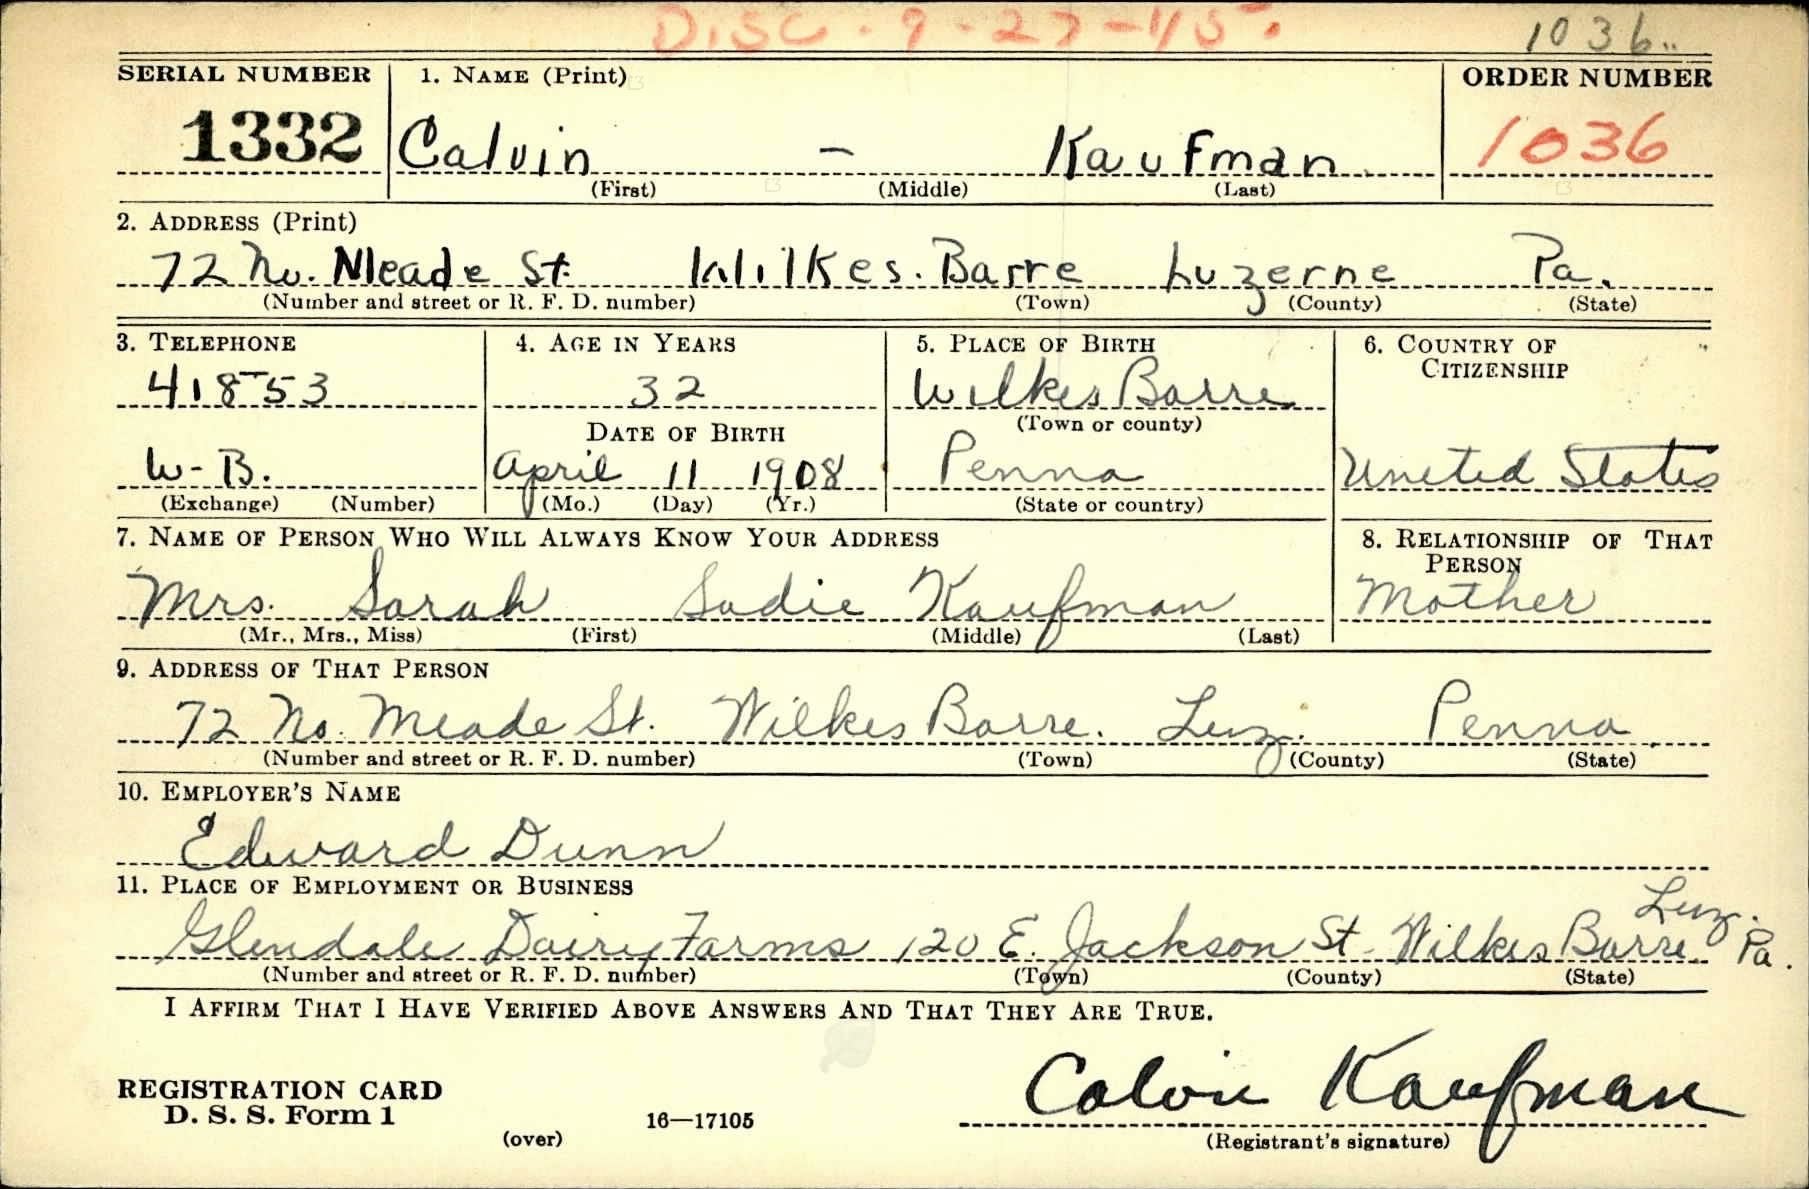 DISC. 9-27-45.
1036
SERIAL NUMBER
1332
1. NAME (Print)
Calvin - Kaufman.
(First) (Middle) (Last)
ORDER NUMBER
1036
2. ADDRESS (Print)
72 No. Meade St. Wilkes. Barre Luzerne Pa.
(Number and street or R. F. D. number) (Town) (County) (State)
3. TELEPHONE
41853
W-B.
(Exchange) (Number)
4. AGE IN YEARS
32
DATE OF BIRTH
April 11 1908
(Mo.) (Day) (Yr.)
5. PLACE OF BIRTH
Wilkes Barre
(Town or county)
Penna
(State or country)
6. COUNTRY OF
CITIZENSHIP
United States
7. NAME OF PERSON WHO WILL ALWAYS KNOW YOUR ADDRESS
Mrs. Sarah Sadie Kaufman
(Mr., Mrs., Miss) (First) (Middle) (Last)
8. RELATIONSHIP OF THAT
PERSON
Mother
9. ADDRESS OF THAT PERSON
72 No. Meade St. Wilkes Barre. Luz. Penna.
(Number and street or R. F. D. number) (Town) (County) (State)
10. EMPLOYER'S NAME
Edward Dunn
11. PLACE OF EMPLOYMENT OR BUSINESS
Glendale Dairy Farms 120 E. Jackson St. Wilkes Barre. Luz. Pa.
(Number and street or R. F. D. number) (Town) (County) (State)
I AFFIRM THAT I HAVE VERIFIED ABOVE ANSWERS AND THAT THEY ARE TRUE.
REGISTRATION CARD
D. S. S. Form 1
(over)
16—17105
Calvin Kaufman
(Registrant's signature)